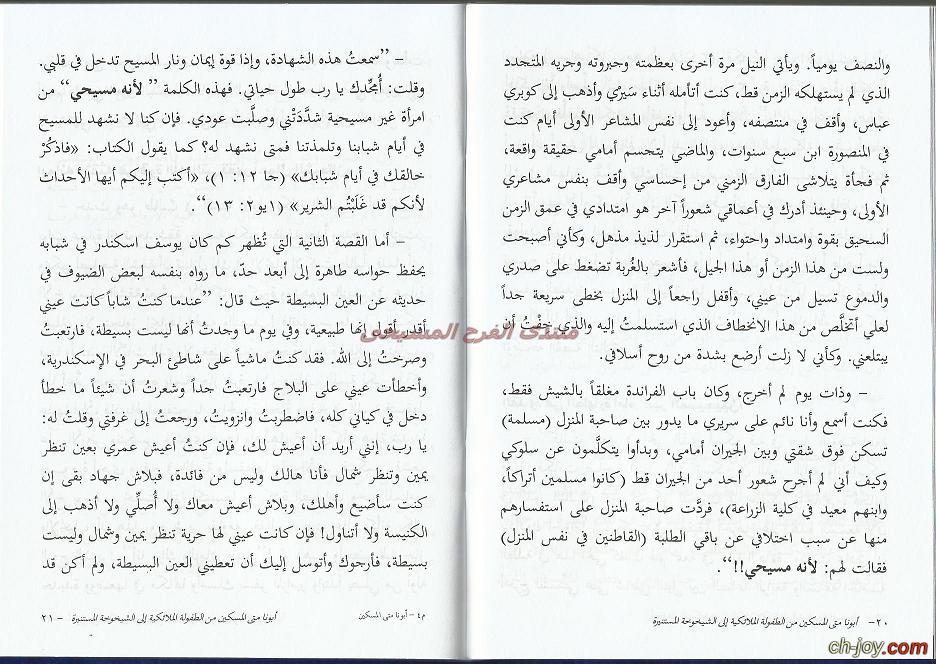 والنصف يومياً. ويأتي النيل مرة أخرى بعظمته وجبروته وجريه المتجدد
الذي لم يستهلكه الزمن قط، كنت أتأمله أثناء سَيْري وأذهب إلى كوبري
عباس، وأقف في منتصفه، وأعود إلى نفس المشاعر الأولى أيام كنت
في المنصورة ابن سبع سنوات، والماضي يتجسم أمامي حقيقة واقعة،
ثم فجأة يتلاشى الفارق الزمني من إحساسي وأقف بنفس مشاعري
الأولى، وحينئذ أدرك في أعماقي شعوراً آخر هو امتدادي في عمق الزمن
السحيق بقوة وامتداد واحتواء، ثم استقرار لذيذ مذهل، وكأني أصبحت
ولست من هذا الزمن أو هذا الجيل، فأشعر بالغُربة تضغط على صدري
والدموع تسيل من عيني، وأقفل راجعاً إلى المنزل بخطى سريعة جداً
لعلي أتخلَّص من هذا الانخطاف الذي استسلمتُ إليه والذي خِفْتُ أن
يبتلعني. وكأني لا زلت أرضع بشدة من روح أسلافي.
– وذات يوم لم أخرج، وكان باب الفراندة مغلقاً بالشيش فقط،
فكنت أسمع وأنا نائم على سريري ما يدور بين صاحبة المنزل (مسلمة)
تسكن فوق شقتي وبين الجيران أمامي، وبدأوا يتكلَّمون عن سلوكي
وكيف أني لم أجرح شعور أحد من الجيران قط (كانوا مسلمين أتراكاً،
وابنهم معيد في كلية الزراعة)، فردَّت صاحبة المنزل على استفسارهم
منها عن سبب اختلافي عن باقي الطلبة (القاطنين في نفس المنزل)
فقالت لهم: لأنه مسيحي!!“.
٢٠– أبونا متى المسكين من الطفولة الملائكية إلى الشيخوخة المستنيرة
– ”سمعتُ هذه الشهادة، وإذا قوة إيمان ونار المسيح تدخل في قلبي.
وقلت: أُمجِّدك يا رب طول حياتي. فهذه الكلمة ” لأنه مسيحي“ من
امرأة غير مسيحية شدَّدَتْني وصلَّبت عودي. فإن كنا لا نشهد للمسيح
في أيام شبابنا وتلمذتنا فمتى نشهد له؟ كما يقول الكتاب: «فاذكُرْ
خالقك في أيام شبابك» (جا ١٢: ١)، «أكتب إليكم أيها الأحداث
لأنكم قد غَلَبْتُم الشرير» (١يو٢: ١٣)“.
– أما القصة الثانية التي تُظهر كم كان يوسف اسكندر في شبابه
يحفظ حواسه طاهرة إلى أبعد حدّ، ما رواه بنفسه لبعض الضيوف في
حديثه عن العين البسيطة حيث قال: ”عندما كنتُ شاباً كانت عيني
أقدر أقول إنها طبيعية، وفي يوم ما وجدتُ أنها ليست بسيطة، فارتعبتُ
وصرختُ إلى الله. فقد كنتُ ماشياً على شاطئ البحر في الإسكندرية،
وأخطأت عيني على البلاج فارتعبتُ جداً وشعرتُ أن شيئاً ما خطأ
دخل في كياني كله، فاضطربتُ وانزويتُ، ورجعتُ إلى غرفتي وقلتُ له:
يا رب، إنني أريد أن أعيش لك، فإن كنتُ أعيش عمري بعين تنظر
يمين وتنظر شمال فأنا هالك وليس من فائدة، فبلاش جهاد بقى إن
كنت سأضيع وأهلك، وبلاش أعيش معاك ولا أُصلِّي ولا أذهب إلى
الكنيسة ولا أتناول! فإن كانت عيني لها حرية تنظر يمين وشمال وليست
بسيطة، فأرجوك وأتوسل إليك أن تعطيني العين البسيطة، ولم أكن قد
م٤– أبونا متى المسكين
أبونا متى المسكين من الطفولة الملائكية إلى الشيخوخة المستنيرة – ٢١
منتدى الفرح المسيحى
ch-joy.com